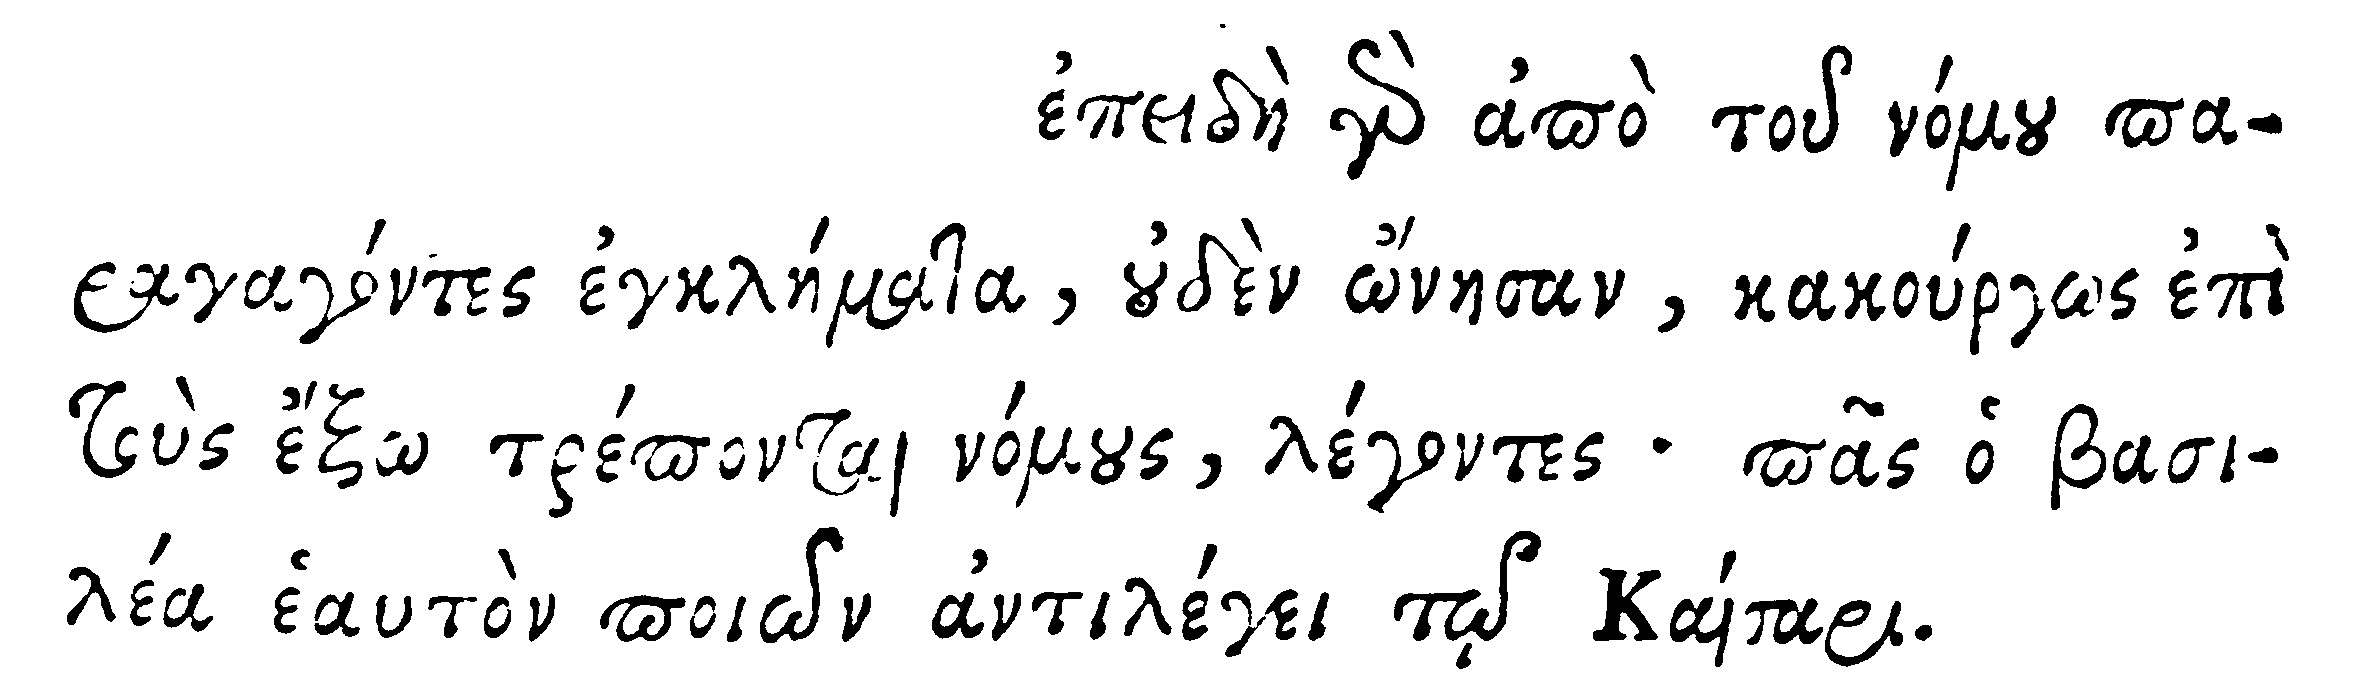 ἐπειδὴ γὰρ ἀπὸ τοῦ νόμου πα-
ραγαγόντες ἐγκλήματα, οὐδὲν ὤνησαν, κακούργως ἐπὶ
τοὺς ἔξω τρέπονται νόμους, λέγοντες· πᾶς ὁ βασι-
λέα ἑαυτὸν ποιῶν ἀντιλέγει τῷ Καίσαρι.